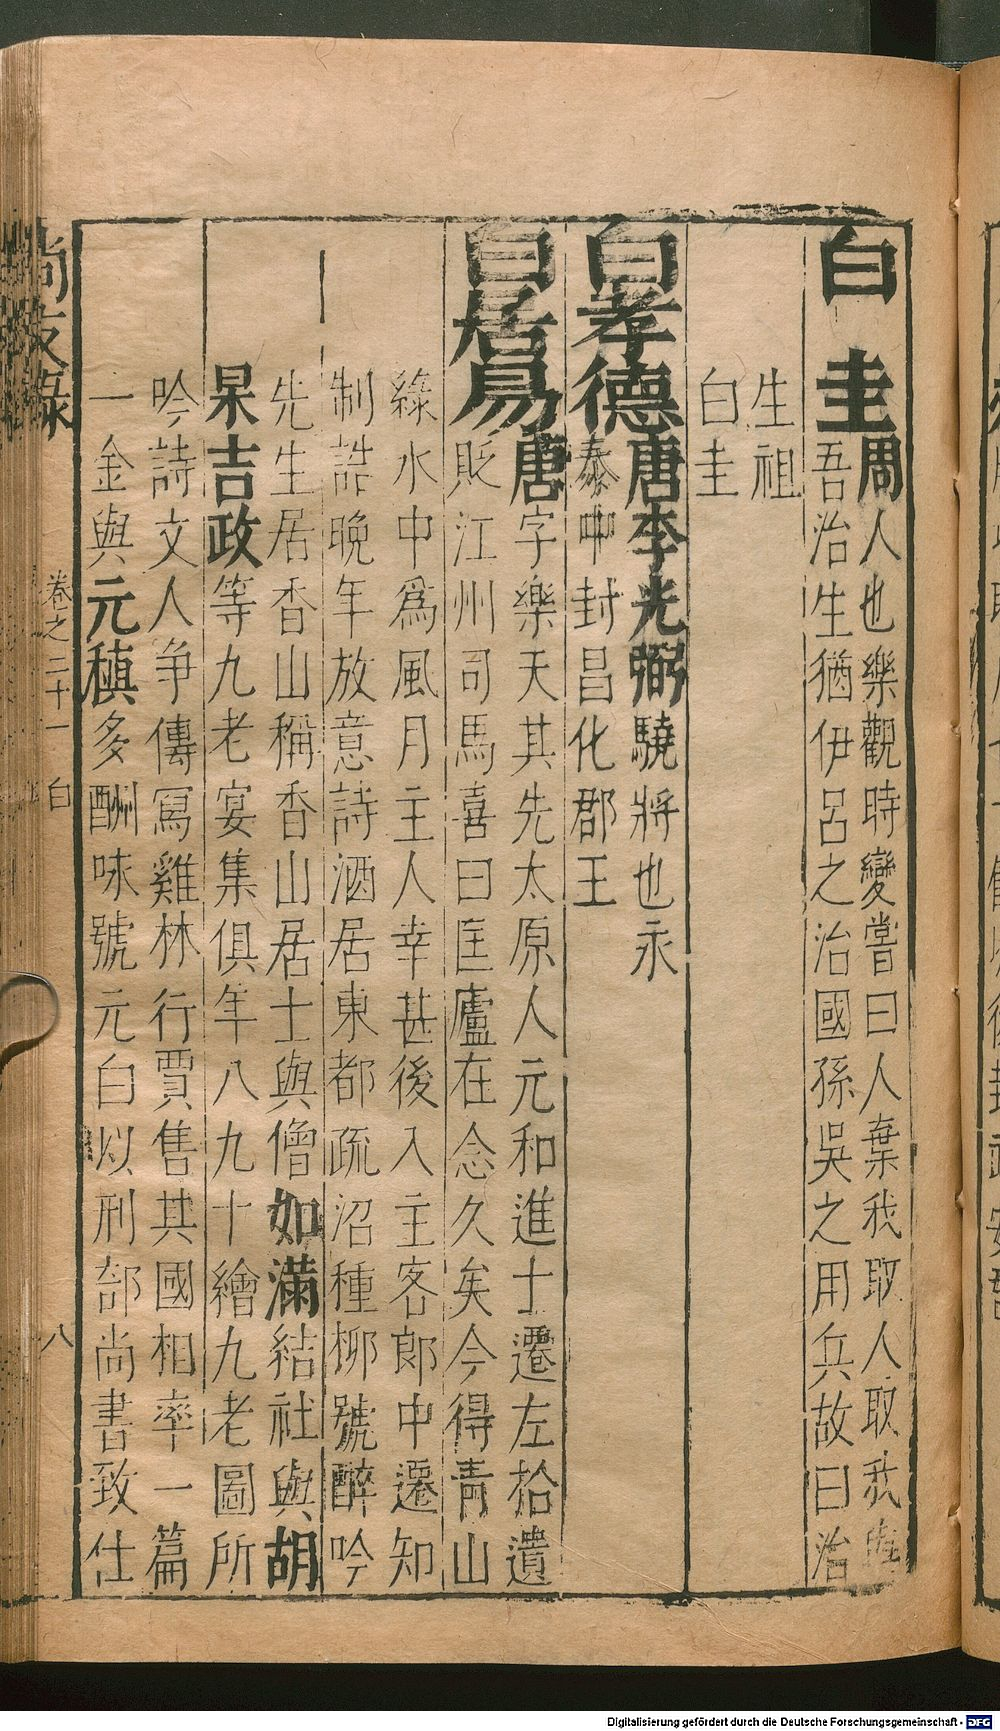 白圭周人也樂觀時變嘗曰人棄我取人取我與
吾治生猶伊呂之治國孫吳之用兵故曰治
生祖
白圭
白孝德唐李光弼驍將也永
泰中封昌化郡王
白居易唐字樂天其先太原人元和進士遷左拾遺
貶江州司馬喜曰匡廬在念久矣今得靑山
綠水中爲風月主人幸甚後入主客郎中遷知
制誥晚年放意詩酒居東都疏沼種柳號醉吟
先生居香山稱香山居士與僧如滿結社與胡
杲吉政等九老宴集俱年八九十繪九老圖所
吟詩文人爭傳寫雞林行賈售其國相率一篇
一金與元稹多酬咏號元白以刑部尚書致仕
尚友錄 卷之二十一 白 八
Digitalisierung gefördert durch die Deutsche Forschungsgemeinschaft - DFG